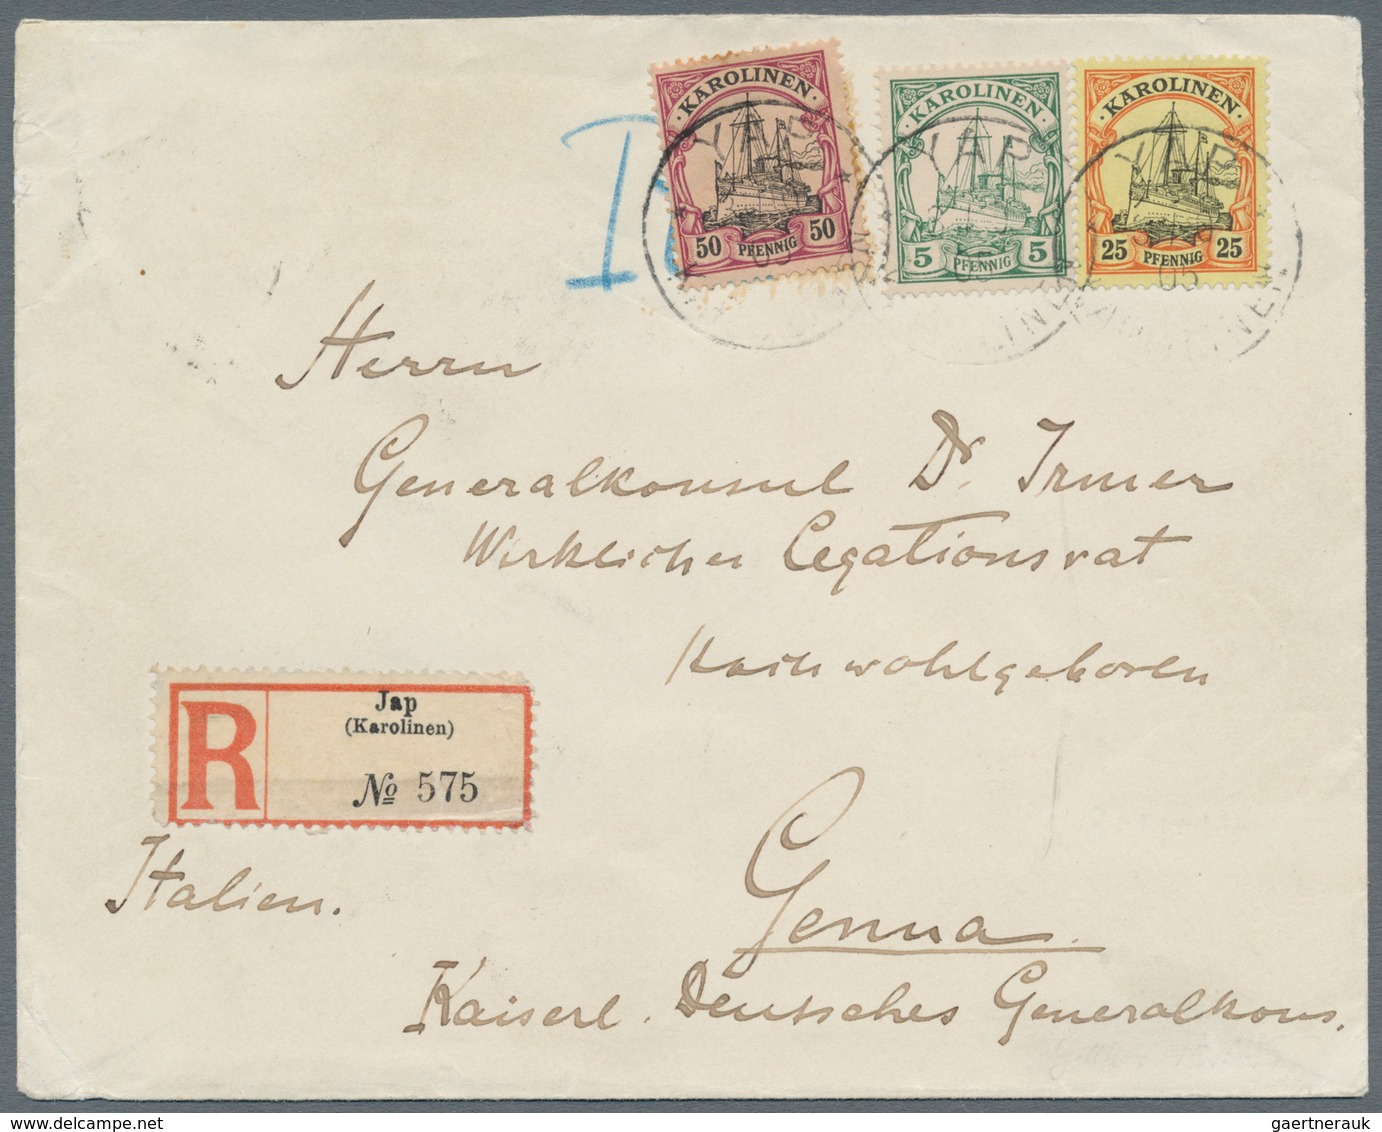 KAROLINEN
50 PFENNIG 50
KAROLINEN
5 PFENNIG 5
KAROLINEN
25 PFENNIG 25
YAP
05
YAP
YAP
05
Herrn
Generalkonsul Dr. Irmer
Wirklicher Legationsrat
Hochwohlgeboren
R
Jap
(Karolinen)
№ 575
Italien.
Genua
Kaiserl. Deutsches Generalkons.
gaertnerauk